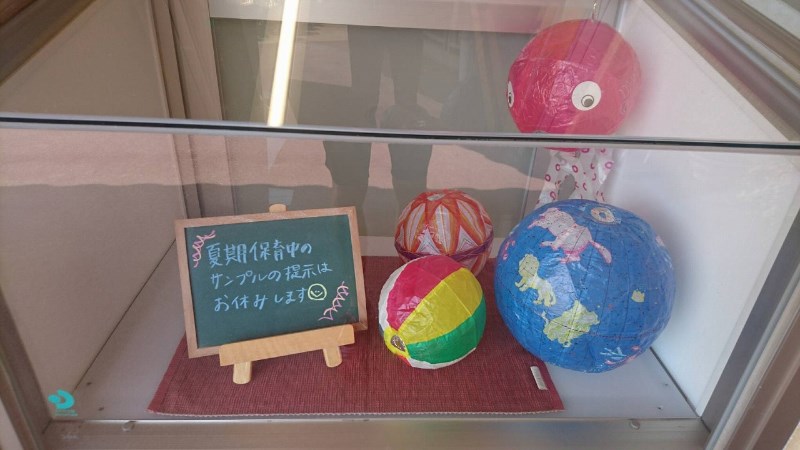 夏期保育中の
サンプルの提示は
お休みします